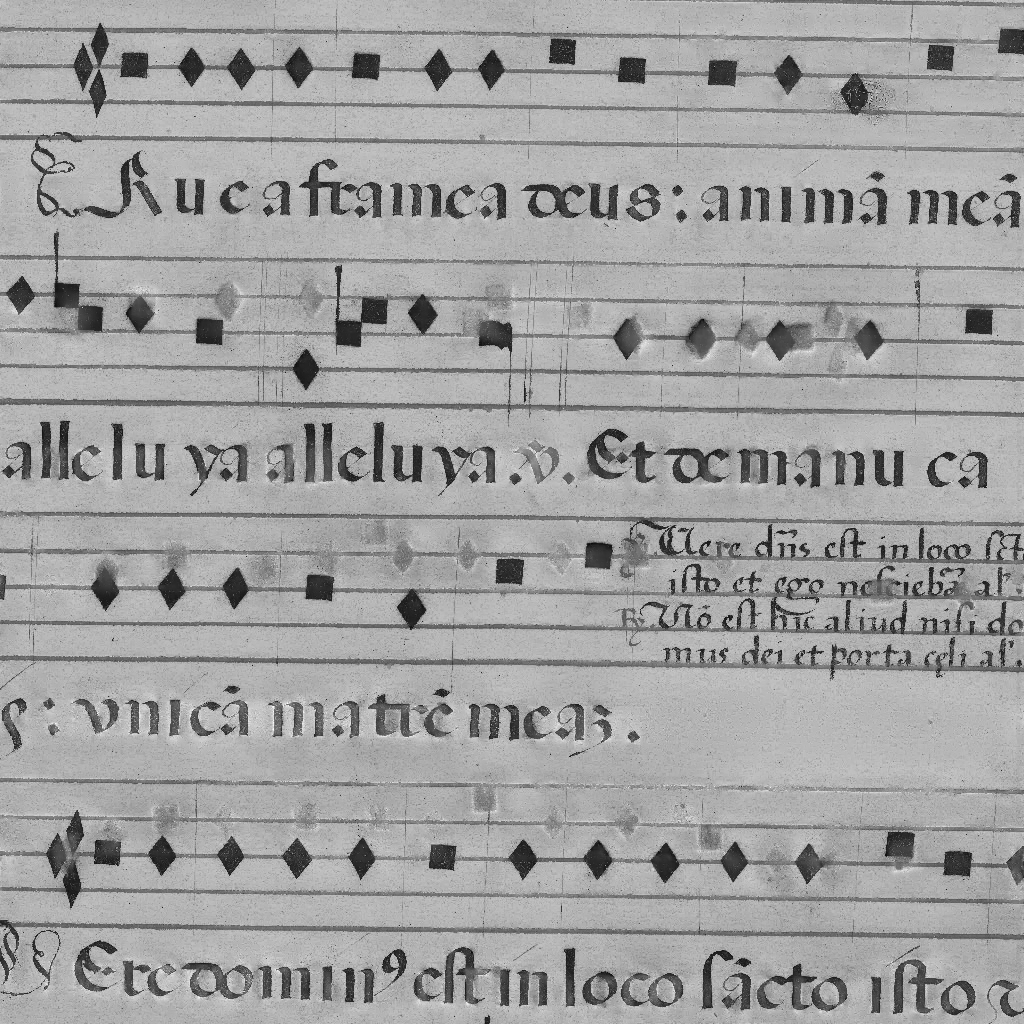 ERue a framea deus: animā meā
alleluya alleluya. ℣. Et de manu ca
Uere dn̄s est in loco sct
isto et ego nesciebā al'.
℟ Nō est hīc aliud nisi do
mus dei et porta cęli al'.
: vnicā matrē meaȝ.
Vere dominꝰ est in loco sācto isto